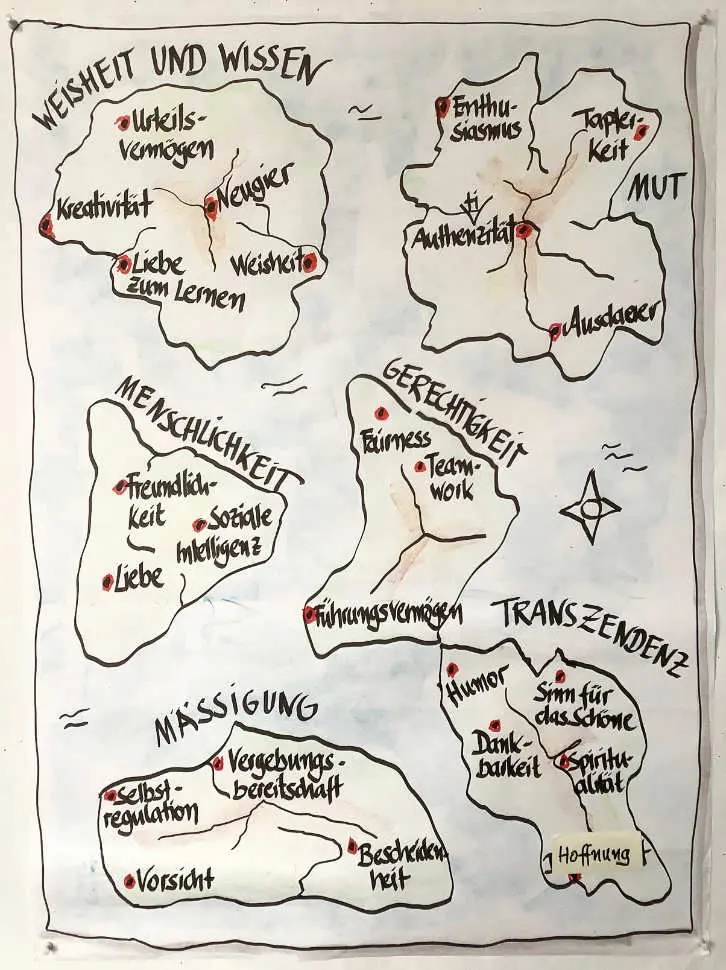 WEISHEIT UND WISSEN
Urteils-
vermögen
Kreativität
Neugier
Liebe
zum Lernen
Weisheit
MUT
Enthu-
siasmus
Tapfer-
keit
Authenzität
Ausdauer
MENSCHLICHKEIT
Freundlich-
keit
Soziale
Intelligenz
Liebe
GERECHTIGKEIT
Fairness
Team-
work
Führungsvermögen
TRANSZENDENZ
Humor
Sinn für
das Schöne
Dank-
barkeit
Spiritu-
alität
Hoffnung
MÄSSIGUNG
Vergebungs-
bereitschaft
Selbst-
regulation
Bescheiden-
heit
Vorsicht